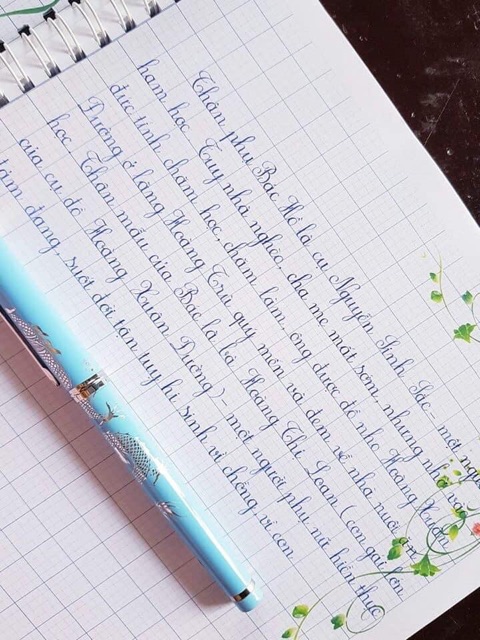 Thân phụ Bác Hồ là cụ Nguyễn Sinh Sắc - một người
ham học. Tuy nhà nghèo, cha mẹ mất sớm, nhưng nhờ có
đức tính chăm học, chăm làm, ông được đồ nho Hoàng Xuân
Đường ở làng Hoàng Trù quý mến và đem về nhà nuôi ăn
học. Thân mẫu của Bác là bà Hoàng Thị Loan (con gái lớn
của cụ đồ Hoàng Xuân Đường) - một người phụ nữ hiền thục
tảm đang, suốt đời tận tụy hi sinh vì chồng, vì con